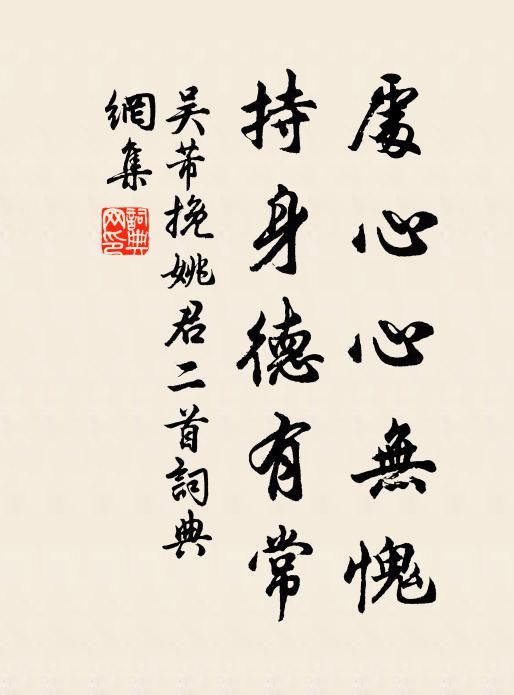 處心心無愧
持身德有常
吴芾挽姚君二首詞典
網集
詞典
网印